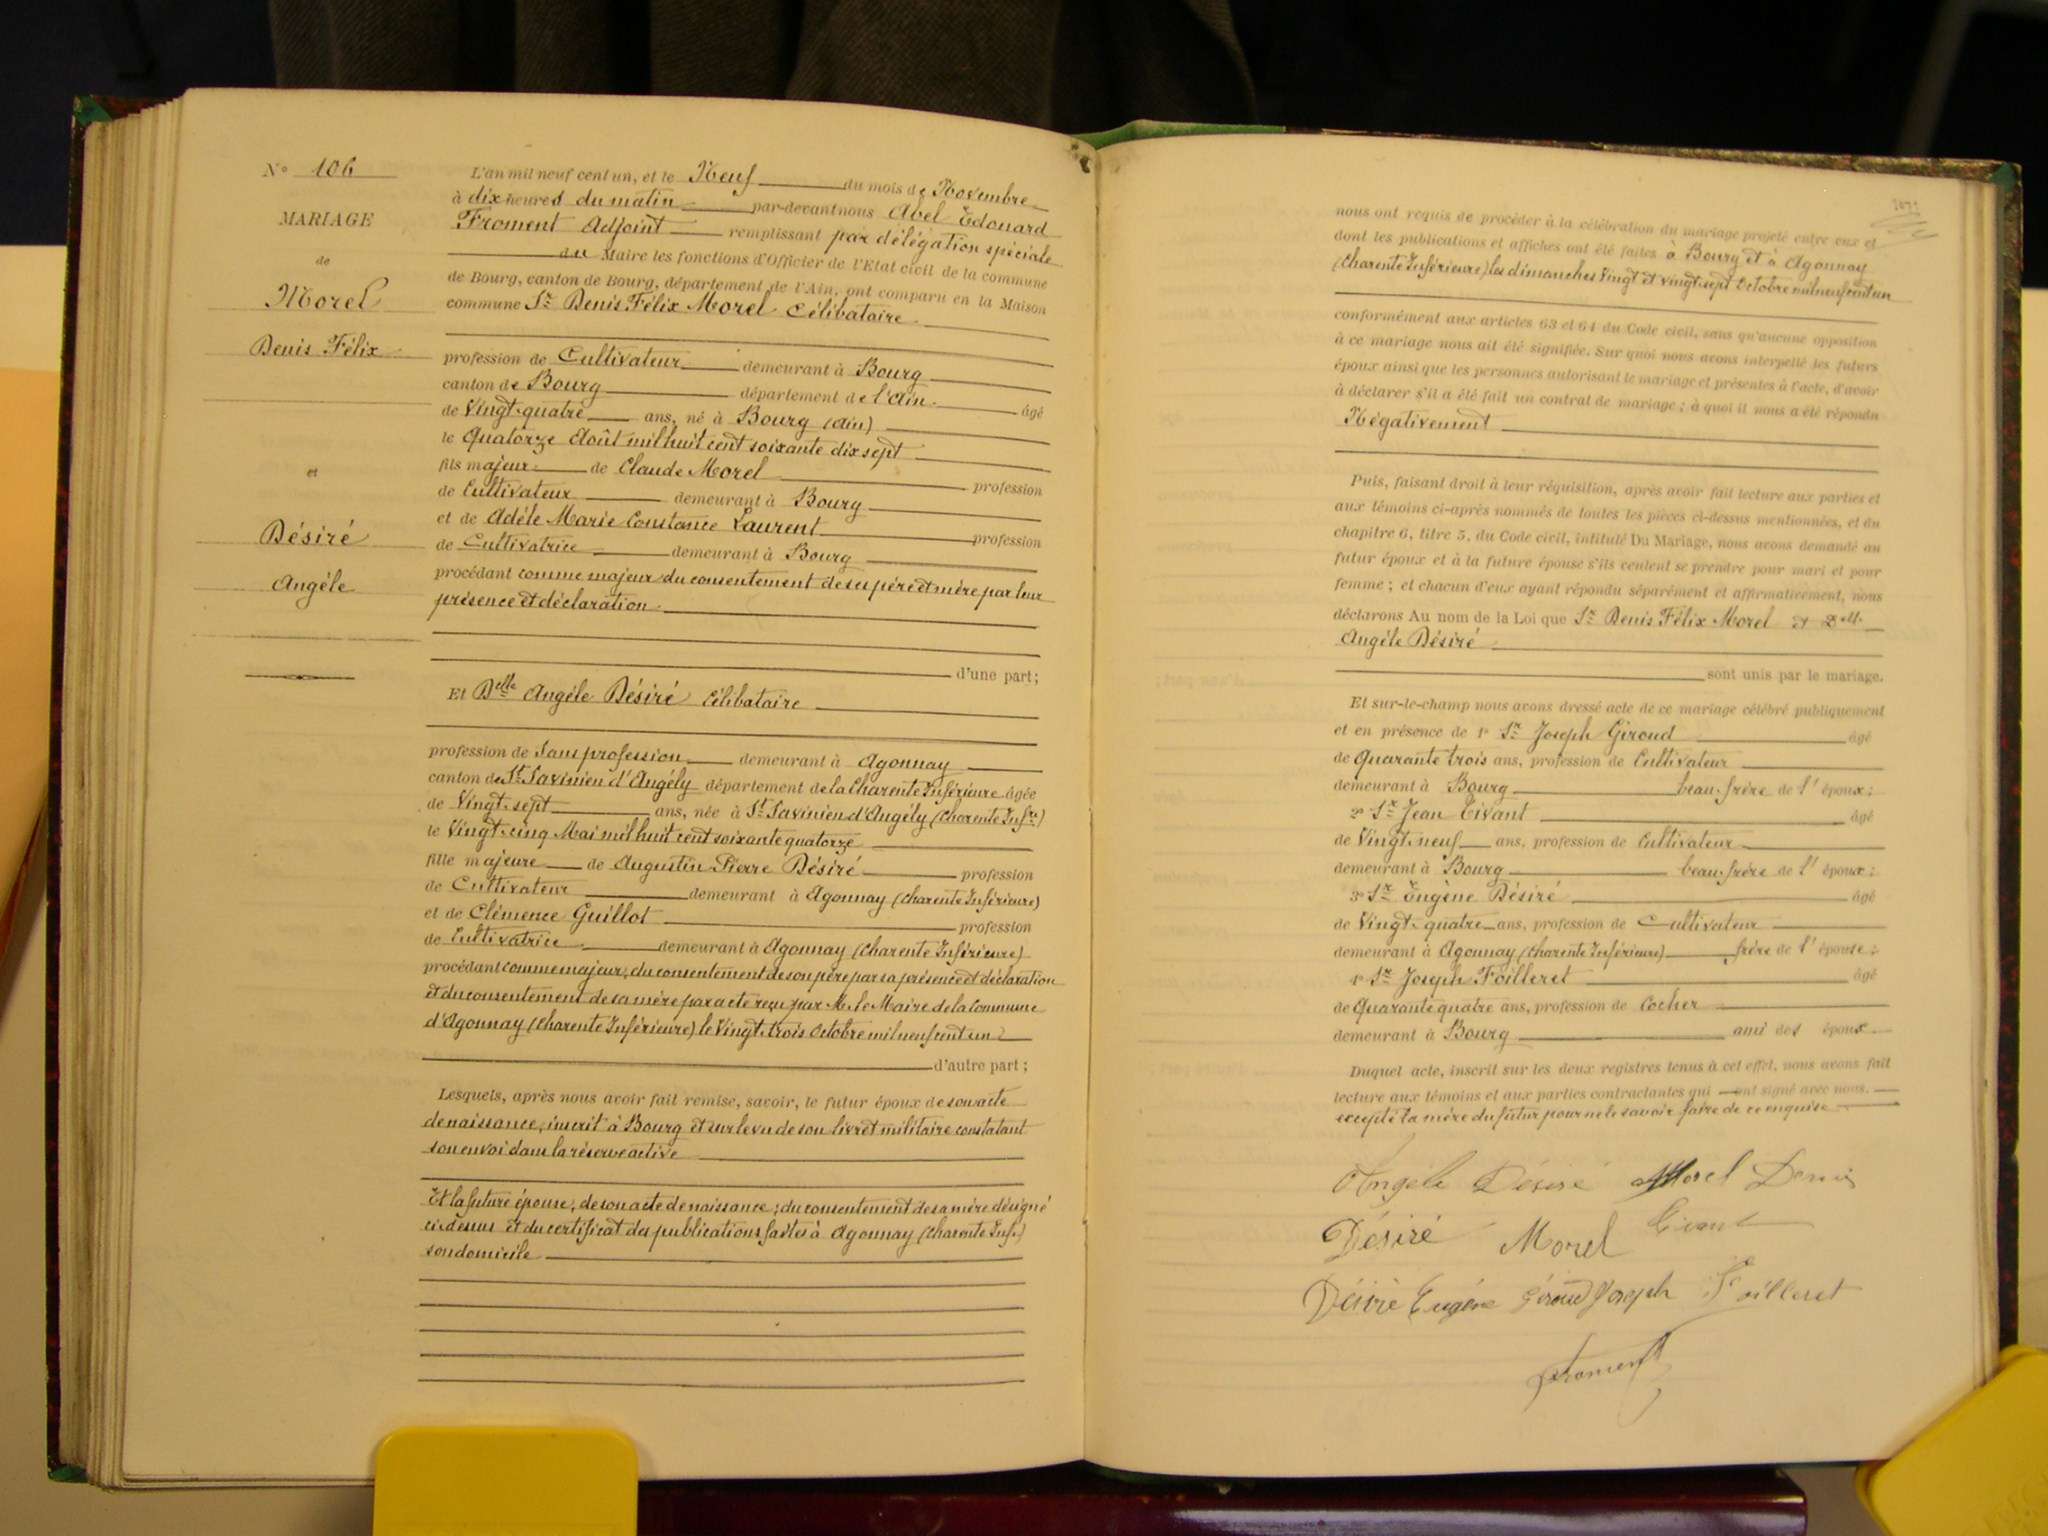 N° 106
MARIAGE
de
Morel
Denis Félix
et
Désiré
Angèle
L'an mil neuf cent un, et le Neuf du mois de Novembre
à dix heures du matin par-devant nous Abel Edouard
Froment Adjoint remplissant par délégation spéciale
du Maire les fonctions d'Officier de l'Etat civil de la commune
de Bourg, canton de Bourg, département de l'Ain, ont comparu en la Maison
commune Sr Denis Félix Morel Célibataire
profession de Cultivateur demeurant à Bourg
canton de Bourg département de l'Ain. âgé
de Vingt-quatre ans, né à Bourg (Ain)
le Quatorze Août mil huit cent soixante dix sept
fils majeur de Claude Morel profession
de Cultivateur demeurant à Bourg
et de Adèle Marie Constance Laurent profession
de Cultivatrice demeurant à Bourg
procédant comme majeur du consentement de ses père et mère par leur
présence et déclaration.
d'une part;
Et Delle Angèle Désiré Célibataire
profession de Sans profession demeurant à Agonnay
canton de St Savinien d'Angély département de la Charente Inférieure âgée
de Vingt-sept ans, née à St Savinien d'Angély (Charente Infre)
le Vingt-cinq Mai mil huit cent soixante quatorze
fille majeure de Augustin Pierre Désiré profession
de Cultivateur demeurant à Agonnay (Charente Inférieure)
et de Clémence Guillot profession
de Cultivatrice demeurant à Agonnay (Charente Inférieure)
procédant comme majeur, du consentement de son père par sa présence et déclaration
et du consentement de sa mère par acte reçu par M. le Maire de la Commune
d'Agonnay (Charente Inférieure) le Vingt-trois Octobre mil neuf cent un
d'autre part;
Lesquels, après nous avoir fait remise, savoir, le futur époux de son acte
de naissance, inscrit à Bourg et sur le vu de son livret militaire constatant
son envoi dans la réserve active
Et la future épouse, de son acte de naissance; du consentement de sa mère désigné
ci-dessus et du certificat des publications faites à Agonnay (Charente Infr)
son domicile
nous ont requis de procéder à la célébration du mariage projeté entre eux et
dont les publications et affiches ont été faites à Bourg et à Agonnay
(Charente Inférieure) les dimanches Vingt et vingt-sept Octobre mil neuf cent un
conformément aux articles 63 et 64 du Code civil, sans qu'aucune opposition
à ce mariage nous ait été signifiée. Sur quoi nous avons interpellé les futurs
époux ainsi que les personnes autorisant le mariage et présentes à l'acte, d'avoir
à déclarer s'il a été fait un contrat de mariage; à quoi il nous a été répondu
Négativement
Puis, faisant droit à leur réquisition, après avoir fait lecture aux parties et
aux témoins ci-après nommés de toutes les pièces ci-dessus mentionnées, et du
chapitre 6, titre 5, du Code civil, intitulé Du Mariage, nous avons demandé au
futur époux et à la future épouse s'ils veulent se prendre pour mari et pour
femme; et chacun d'eux ayant répondu séparément et affirmativement, nous
déclarons Au nom de la Loi que Sr Denis Félix Morel et Delle
Angèle Désiré
sont unis par le mariage.
Et sur-le-champ nous avons dressé acte de ce mariage célébré publiquement
et en présence de 1° Sr Joseph Giroud âgé
de Quarante trois ans, profession de Cultivateur
demeurant à Bourg beau-frère de l'époux;
2° Sr Jean Civant âgé
de Vingt-neuf ans, profession de Cultivateur
demeurant à Bourg beau-frère de l'époux;
3° Sr Eugène Désiré âgé
de Vingt-quatre ans, profession de Cultivateur
demeurant à Agonnay (Charente Inférieure) frère de l'épouse;
4° Sr Joseph Foilleret âgé
de Quarante quatre ans, profession de Cocher
demeurant à Bourg ami des époux
Duquel acte, inscrit sur les deux registres tenus à cet effet, nous avons fait
lecture aux témoins et aux parties contractantes qui ont signé avec nous.
excepté la mère du futur pour ne le savoir faire de ce enquise
Angèle Désiré Morel Denis
Désiré Morel Civant
Désiré Eugène Giroud Joseph Foilleret
Froment